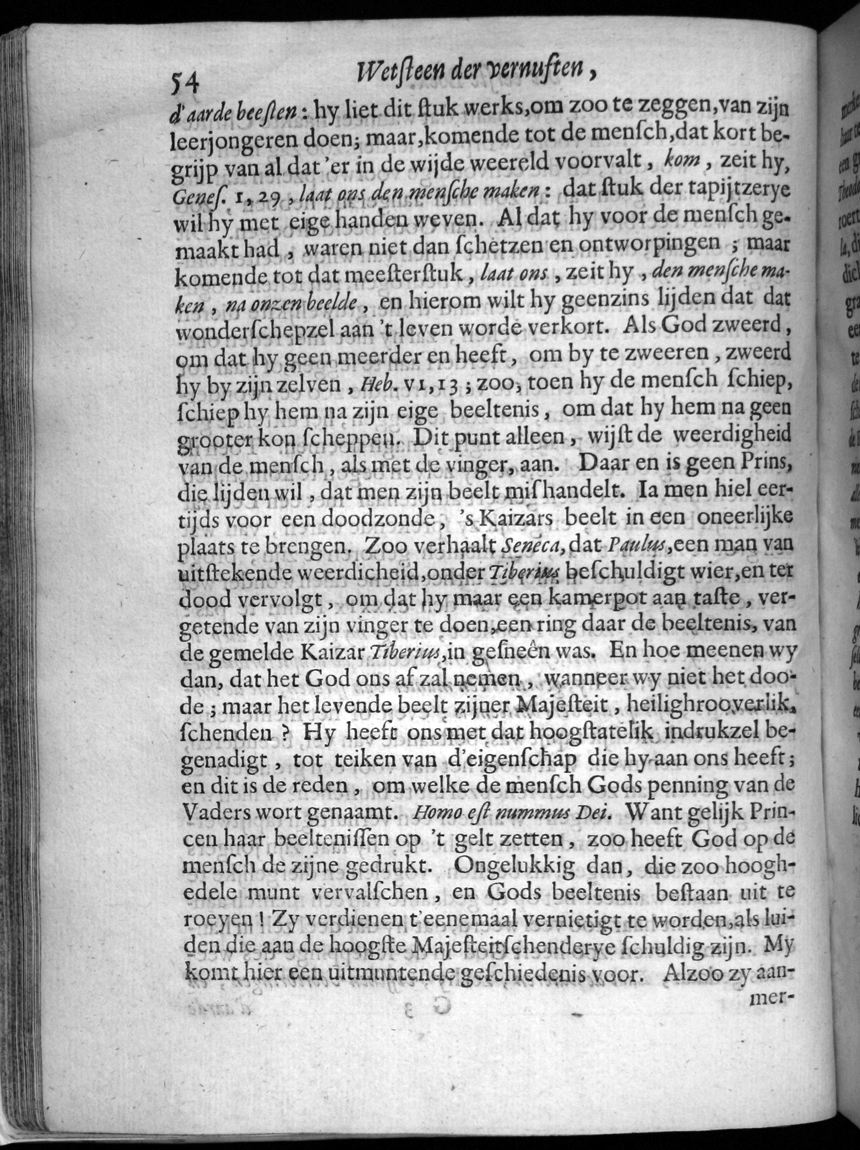 54 Wetſteen der vernuften,
d'aarde beeſten: hy liet dit ſtuk werks, om zoo te zeggen, van zijn
leerjongeren doen; maar, komende tot de menſch, dat kort be-
grijp van al dat 'er in de wijde weereld voorvalt, kom, zeit hy,
Geneſ. 1, 29, laat ons den menſche maken: dat ſtuk der tapijtzerye
wil hy met eige handen weven. Al dat hy voor de menſch ge-
maakt had, waren niet dan ſchetzen en ontworpingen; maar
komende tot dat meeſterſtuk, laat ons, zeit hy, den menſche ma-
ken, na onzen beelde, en hierom wilt hy geenzins lijden dat dat
wonderſchepzel aan 't leven worde verkort. Als God zweerd,
om dat hy geen meerder en heeft, om by te zweeren, zweerd
hy by zijn zelven, Heb. VI, 13; zoo, toen hy de menſch ſchiep,
ſchiep hy hem na zijn eige beeltenis, om dat hy hem na geen
grooter kon ſcheppen. Dit punt alleen, wijſt de weerdigheid
van de menſch, als met de vinger, aan. Daar en is geen Prins,
die lijden wil, dat men zijn beelt miſhandelt. Ia men hiel eer-
tijds voor een doodzonde, 's Kaizars beelt in een oneerlijke
plaats te brengen. Zoo verhaalt Seneca, dat Paulus, een man van
uitſtekende weerdicheid, onder Tiberius beſchuldigt wier, en ter
dood vervolgt, om dat hy maar een kamerpot aan taſte, ver-
getende van zijn vinger te doen, een ring daar de beeltenis, van
de gemelde Kaizar Tiberius, in geſneên was. En hoe meenen wy
dan, dat het God ons af zal nemen, wanneer wy niet het doo-
de; maar het levende beelt zijner Majeſteit, heilighrooverlik,
ſchenden? Hy heeft ons met dat hoogſtatelik indrukzel be-
genadigt, tot teiken van d'eigenſchap die hy aan ons heeft;
en dit is de reden, om welke de menſch Gods penning van de
Vaders wort genaamt. Homo eſt nummus Dei. Want gelijk Prin-
cen haar beelteniſſen op 't gelt zetten, zoo heeft God op de
menſch de zijne gedrukt. Ongelukkig dan, die zoo hoogh-
edele munt vervalſchen, en Gods beeltenis beſtaan uit te
roeyen! Zy verdienen t'eenemaal vernietigt te worden, als lui-
den die aan de hoogſte Majeſteitſchenderye ſchuldig zijn. My
komt hier een uitmuntende geſchiedenis voor. Alzoo zy aan-
mer-